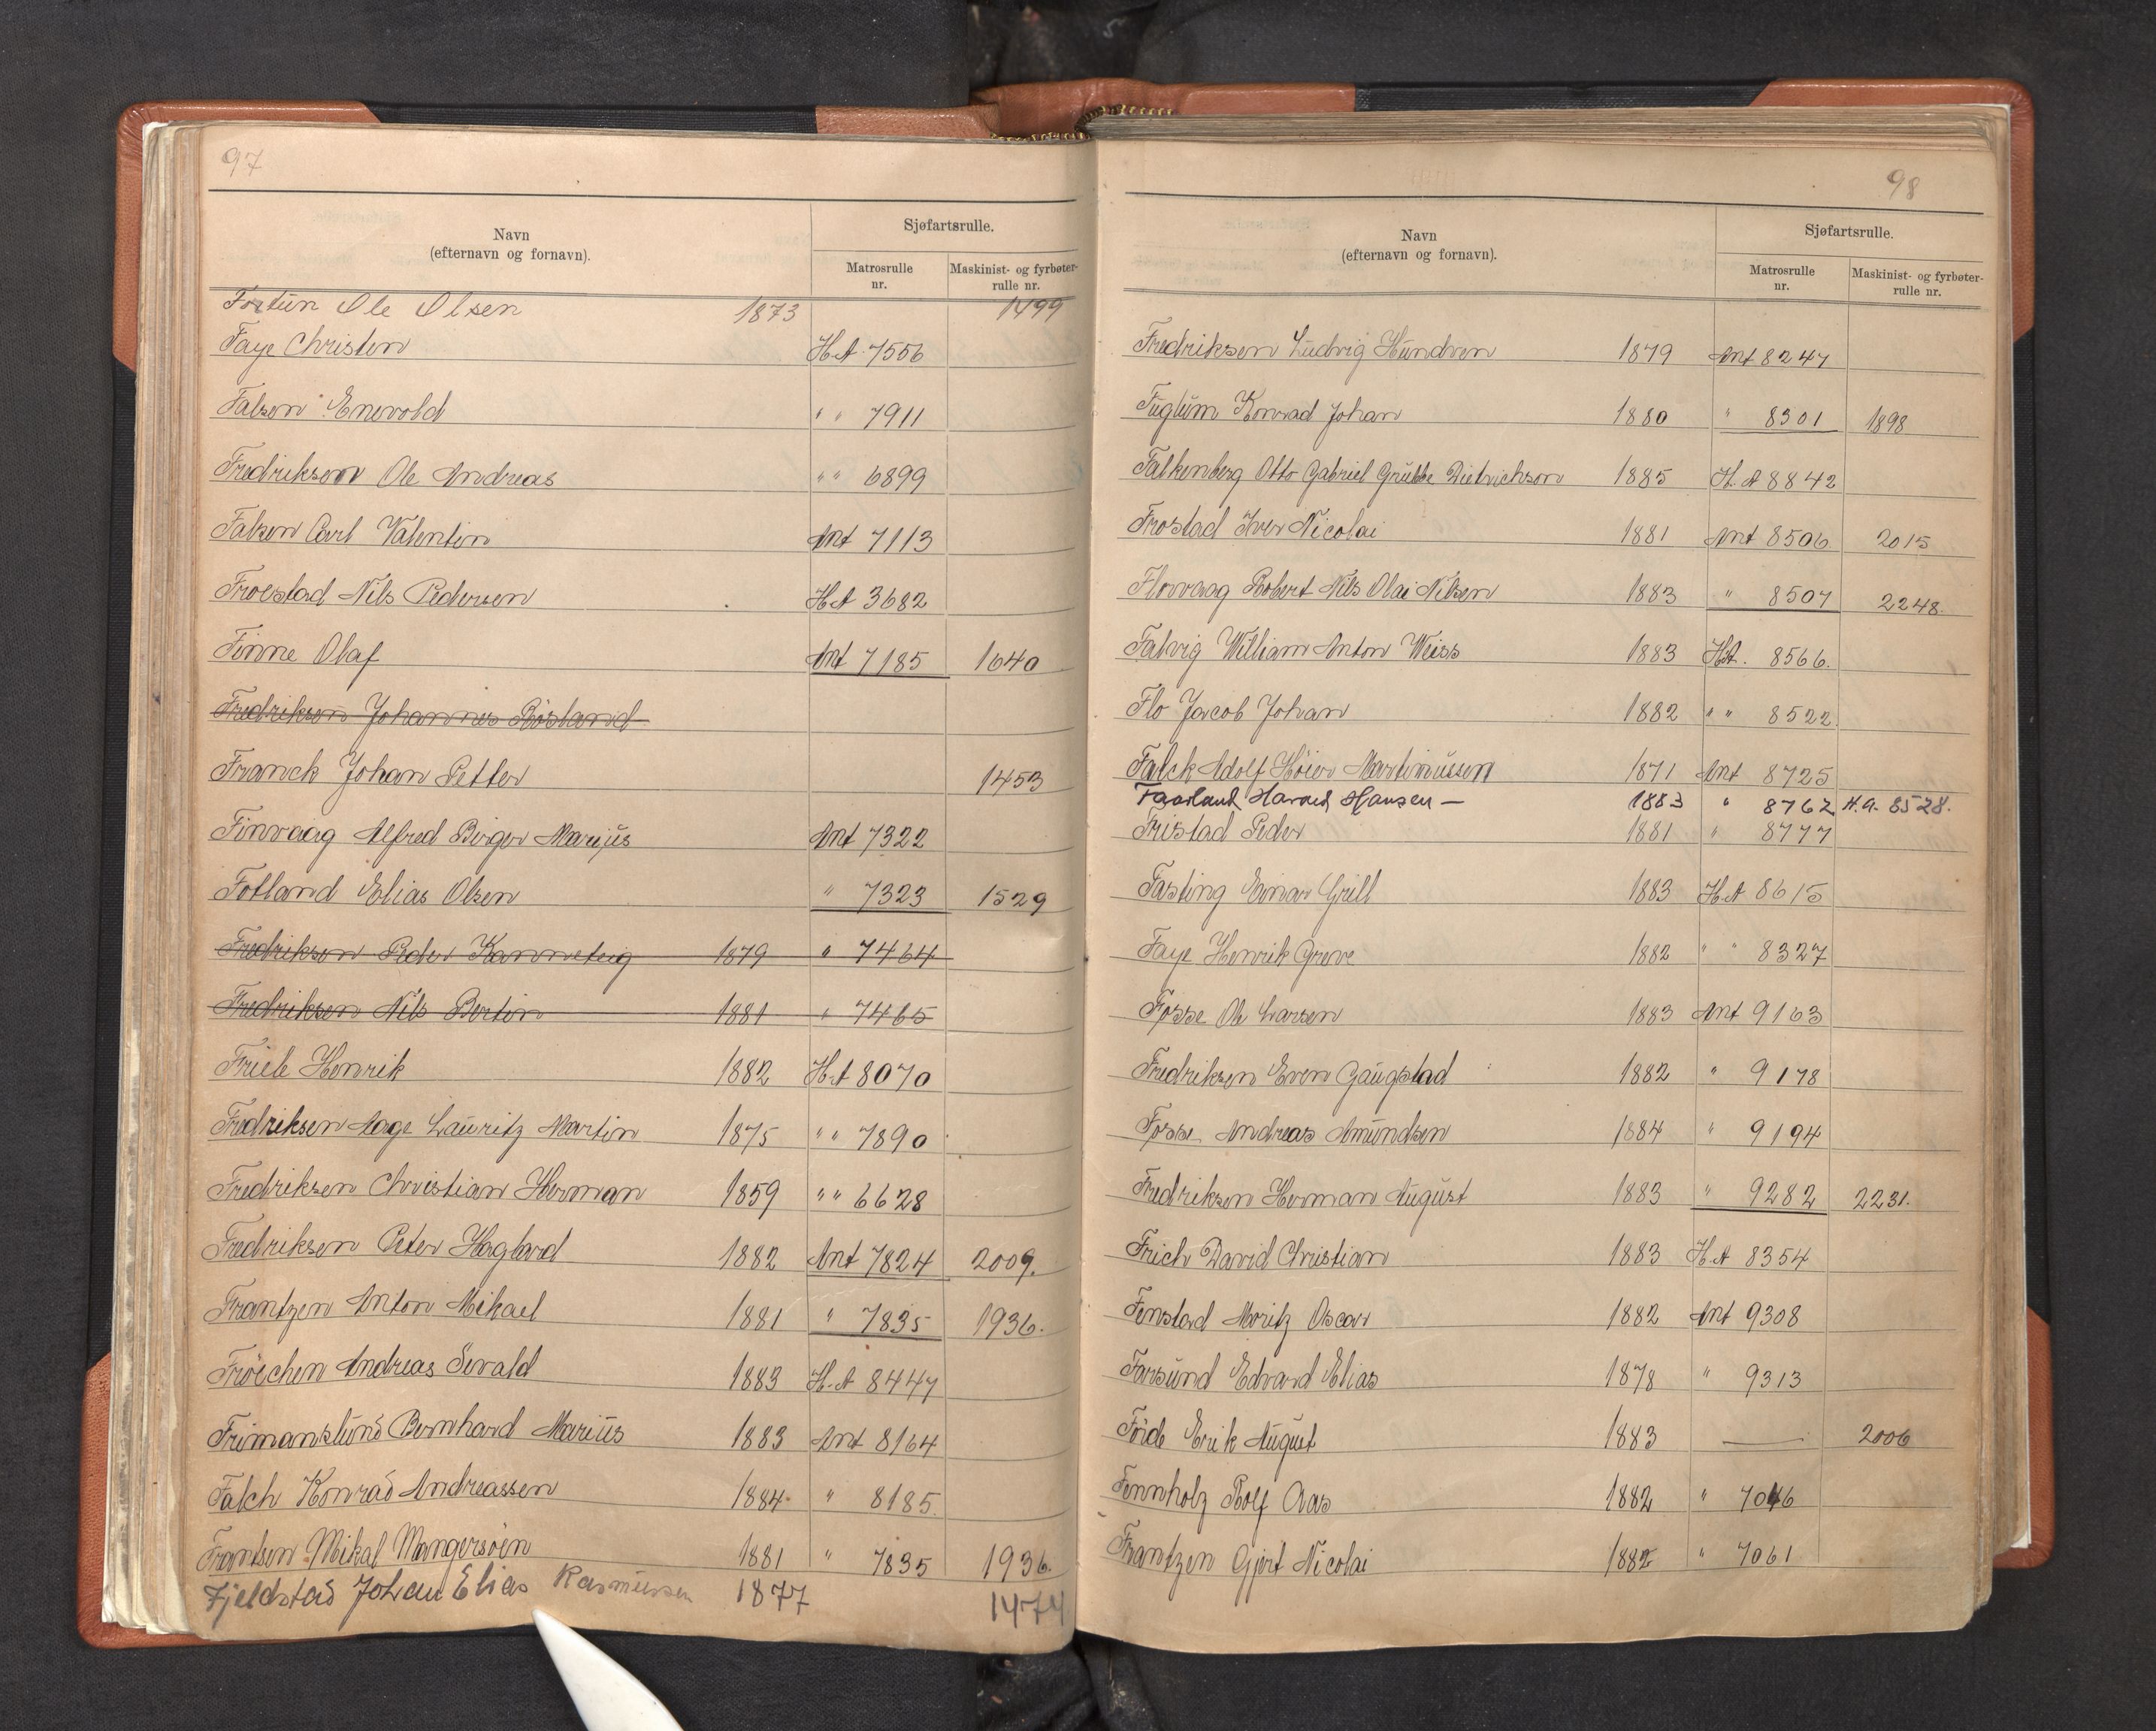 97
Navn
(efternavn og fornavn).
Sjøfartsrulle.
Matrosrulle nr.
Maskinist- og fyrbøter-rulle nr.
Fortun Ole Olsen 1873 1499
Faye Christen H.A 7556
Falsen Enevold " " 7911
Fredriksen Ole Andreas " " 6899
Falsen Carl Valentin Ant 7113
Froestad Nils Pedersen H.A 3682
Finne Olaf Ant 7185 1640
Fredriksen Johannes Röstand
Franck Johan Petter 1453
Finvaag Alfred Birger Marius Ant 7322
Fotland Elias Olsen " 7323 1529
Fredriksen Peder Kanneteig 1879 " 7464
Fredriksen Nils Bertin 1881 " 7465
Friele Henrik 1882 H.A 8070
Fredriksen Aage Lauritz Martin 1875 " " 7890
Fredriksen Christian Herman 1859 " " 6628
Fredriksen Peter Hagbard 1882 Ant 7824 2009.
Frantzen Anton Mikael 1881 " 7835 1936.
Fröechen Andreas Sevald 1883 H.A 8447
Frimanslund Bernhard Marius 1883 Ant 8164
Falch Konrad Andreassen 1884 " 8185
Frantsen Mikal Mangersöen 1881 " 7835 1936.
Fjeldstad Johan Elias Rasmussen 1877 1474
98
Navn
(efternavn og fornavn).
Sjøfartsrulle.
Matrosrulle nr.
Maskinist- og fyrbøter-rulle nr.
Fredriksen Ludvig Hundven 1879 Ant 8247
Fuglum Konrad Johan 1880 " 8301 1898
Falkenberg Otto Gabriel Grubbe Dietrichson 1885 H.A 8842
Frostad Iver Nicolai 1881 Ant 8506 2015
Florvaag Robert Nils Olai Nilsen 1883 " 8507 2248.
Falvig William Anton Weiss 1883 H.A. 8566.
Flo Jacob Johan 1882 " " 8522.
Falck Adolf Höier Martinussen 1871 Ant 8725
Faarland Harald Hansen — 1883 " 8762 H.A. 8528.
Fristad Peder 1881 " 8777
Fasting Einar Grill 1883 H.A 8615
Faye Henrik Greve 1882 " " 8327
Fosse Ole Larsen 1883 Ant 9163
Fredriksen Even Gaugstad 1882 " 9178
Fosse Andreas Amundsen 1884 " 9194
Fredriksen Herman August 1883 " 9282 2231.
Frich David Christian 1883 H.A 8354
Fenstad Moritz Oscar 1882 Ant 9308
Farsund Edvard Elias 1878 " 9313
Förde Erik August 1883 — 2006
Fennholz Rolf Aas 1882 " 7046
Frantzen Gjert Nicolai 1882 " 7061